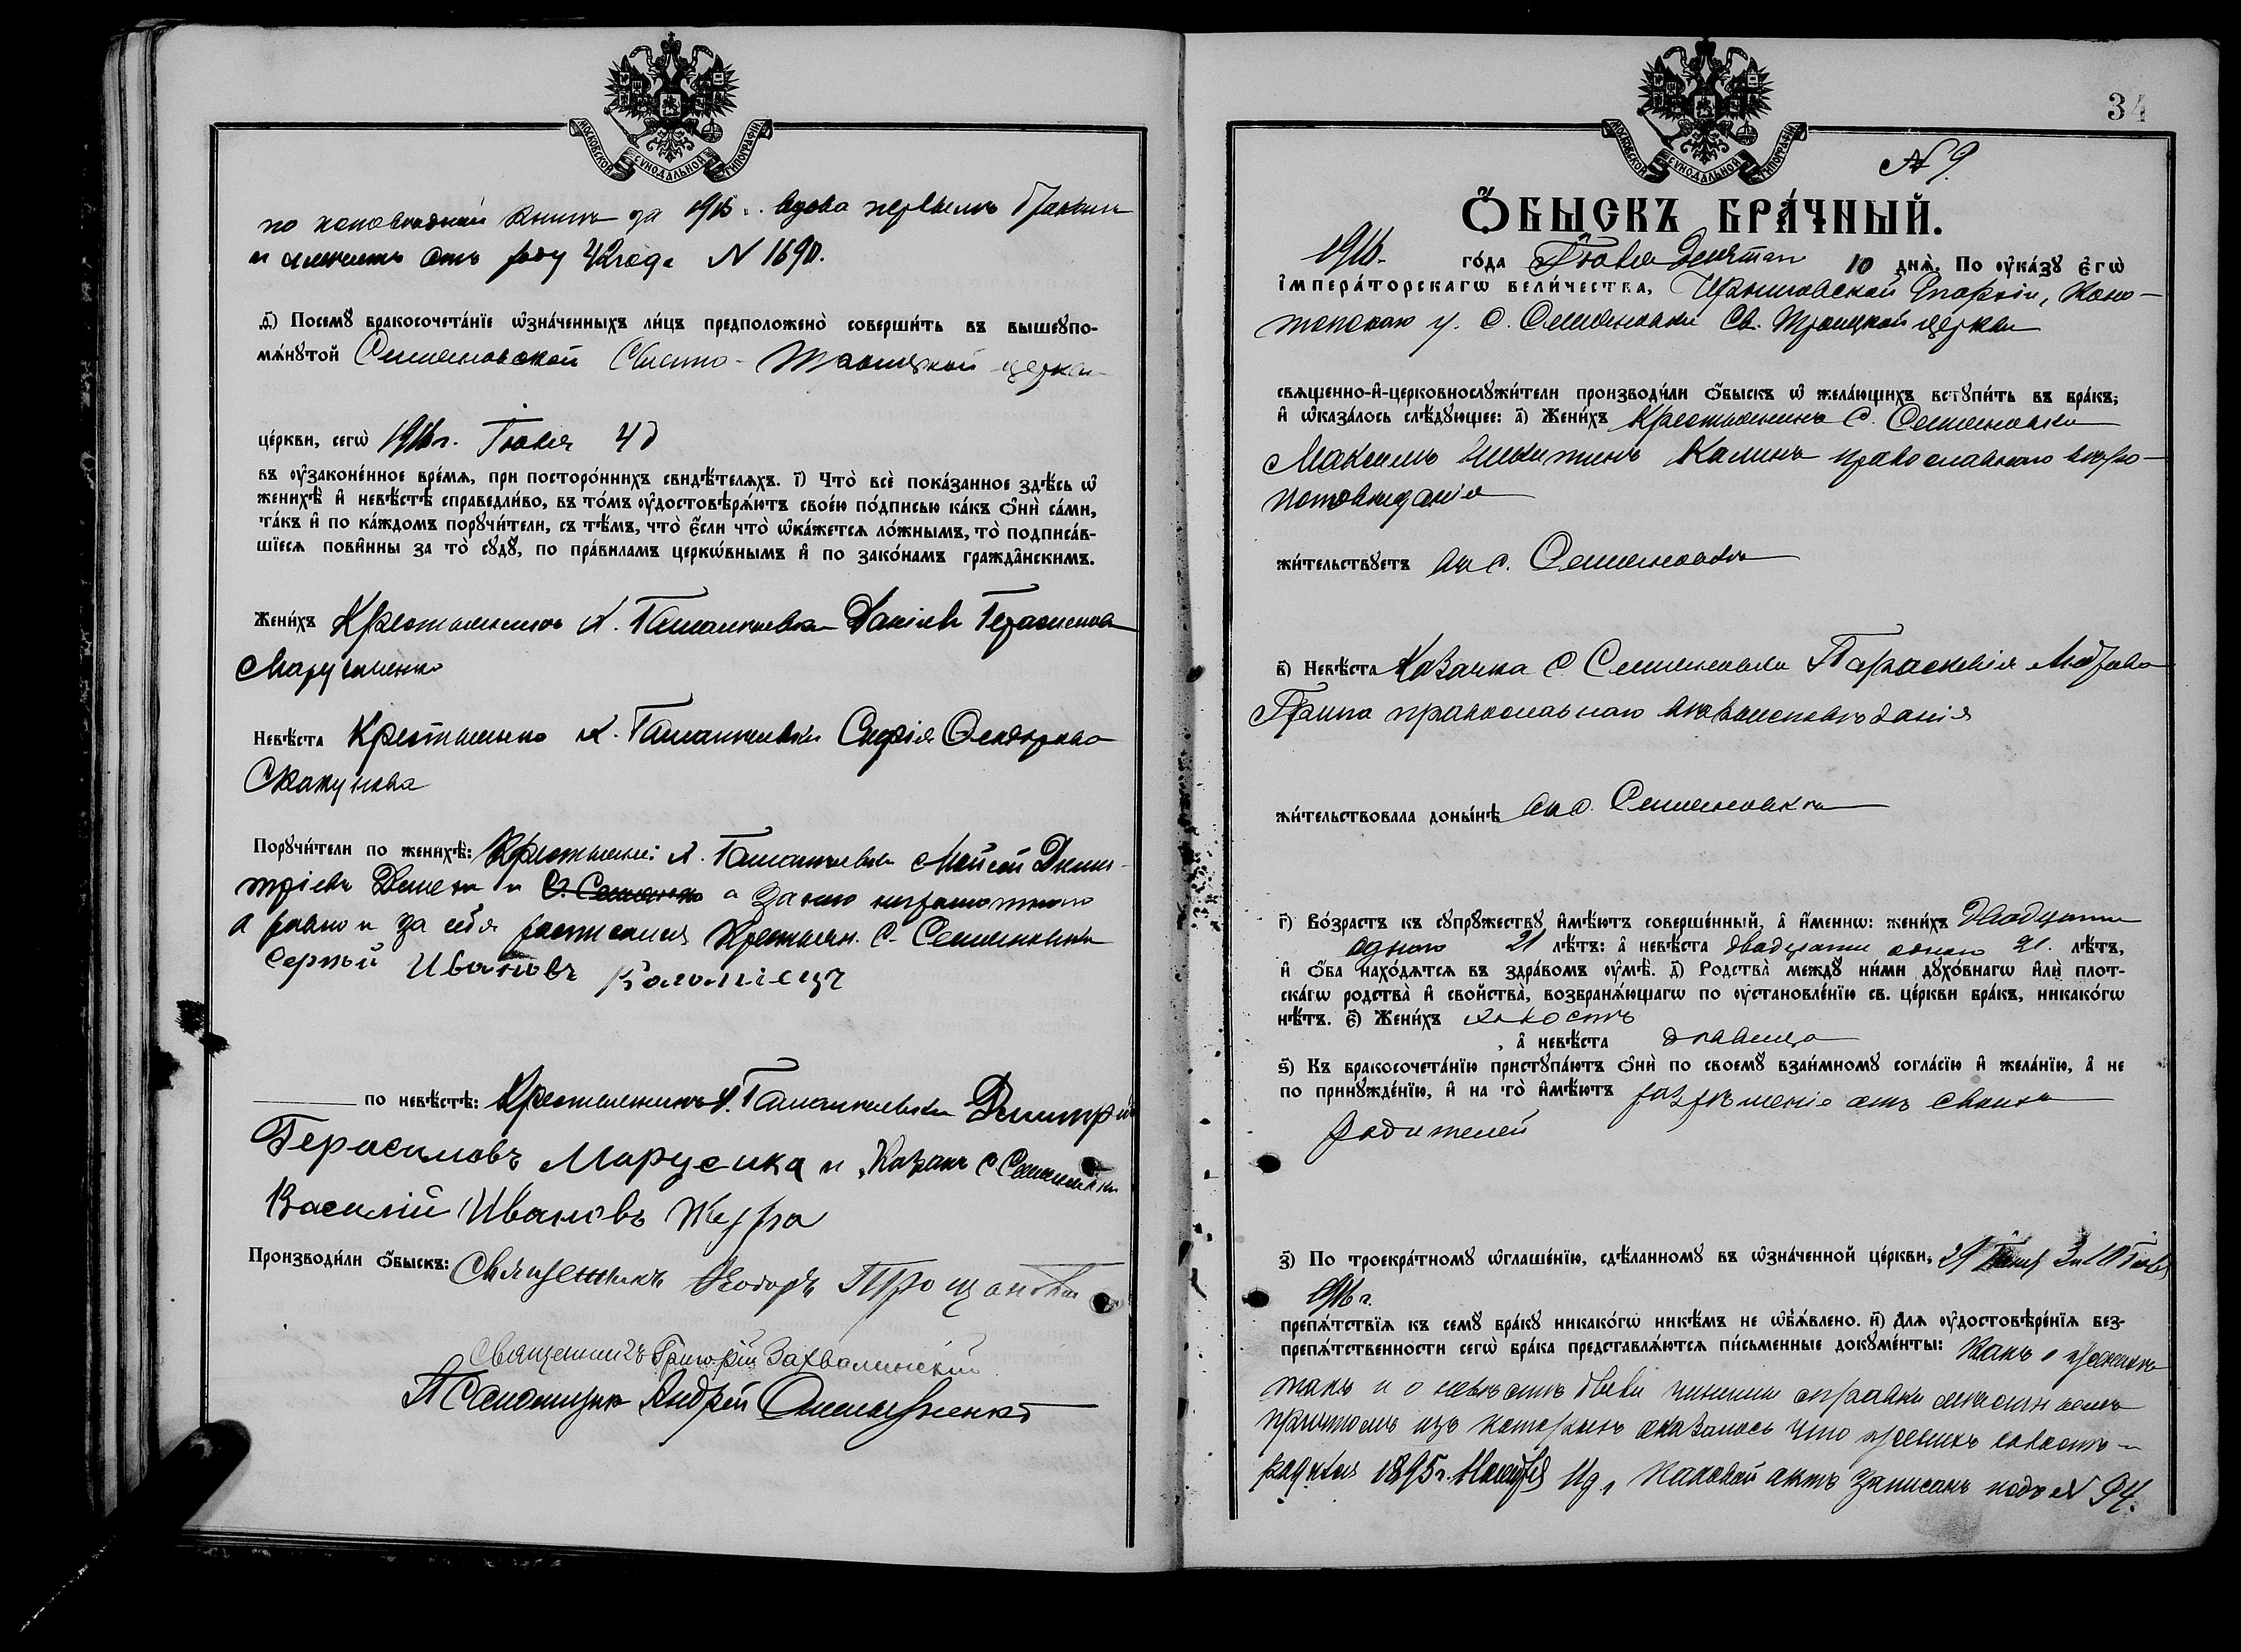 МОСКОВСКОЙ СѴНОДАЛЬНОЙ ТИПОГРАФІИ
по исповѣдной книгѣ за 1915 г. вдова первымъ бракомъ
и имѣетъ отъ роду 42 года N 1690.
д҃) Посемꙋ̀ бракосочета́нїе ѡ҆зна́ченныхъ ли́цъ предположено̀ соверши́ть въ вышеꙋпо-
мѧ́нꙋтой Семеновской Свято-Троицкой церкви
це́ркви, сегѡ̀ 1916 г. Іюля 4 д
въ ᲂу҆законе́нное вре́мѧ, при посторо́ннихъ свидѣ́телѧхъ. і҃) Что̀ всѐ пока́занное здѣ́сь ѡ҆
женихѣ̀ и҆ невѣ́стѣ справедли́во, въ то́мъ ᲂу҆достовѣрѧ́ютъ свое́ю по́дписью ка́къ ѻ҆нѝ са́ми,
та́къ и҆ по ка́ждомъ порꙋчи́тели, съ тѣ́мъ, что̀ є҆́сли что̀ ѡ҆ка́жетсѧ ло́жнымъ, то̀ подписа́в-
шїесѧ пови́нны за то̀ сꙋдꙋ̀, по пра́виламъ церкѡ́внымъ и҆ по зако́намъ гражда́нскимъ.
Жени́хъ Крестьянинъ х. Даніилъ Герасимовъ
Марусиченко
Невѣ́ста Крестьянка х. Софія
Скакунова
Порꙋчи́тели по женихѣ̀: Крестьяне: х. Моисей Дими-
тріевъ и с. Семеновки а за него неграмотнаго
а равно и за себя росписался Крестьян. с. Семеновки
Сергѣй Ивановъ Коломіецъ
по невѣ́стѣ: Крестьянинъ х. Димитрій
Герасимовъ Марусика и Казакъ с Семеновки
Василій Ивановъ Жура
Производи́ли ѻ҆́быскъ: Священникъ Ѳеодоръ
Священникъ Григорій Захвалинскій
Псаломщикъ Андрей
34
МОСКОВСКОЙ СѴНОДАЛЬНОЙ ТИПОГРАФІИ
N 9.
Ѻ҆́БЫСКЪ БРА́ЧНЫЙ.
1916. го́да Іюля Десятаго 10 днѧ̀. По ᲂу҆ка́зꙋ є҆гѡ̀
і҆мпера́торскагѡ вели́чества, Черниговской Епархіи, Коно-
топскаго у. с. Семеновки Св. Троицкой церкви
свѧщенно-и҆-церковнослꙋжи́тели производи́ли ѻ҆́быскъ ѡ҆ жела́ющихъ встꙋпи́ть въ бра́къ;
и҆ ѡ҆каза́лось слѣ́дꙋющее: а҃) Жени́хъ Крестьянинъ с. Семеновки
Максимъ Никитинъ Калинъ православнаго вѣро-
исповѣданія
жи́тельствꙋетъ въ с. Семеновкѣ
в҃) Невѣ́ста Казачка с Семеновки Параскевія
православнаго вѣроисповѣданія
жи́тельствовала доны́нѣ въ с. Семеновкѣ
г҃) Во́зрастъ къ сꙋпрꙋ́жествꙋ и҆мѣ́ютъ соверше́нный, а҆ и҆́меннѡ: жени́хъ Двадцати
одного 21 лѣ́тъ: а҆ невѣ́ста двадцати одного 21. лѣ́тъ,
и҆ ѻ҆́ба нахо́дѧтсѧ въ здра́вомъ ᲂу҆мѣ̀. д҃) Родства̀ междꙋ̀ ни́ми дꙋхо́внагѡ и҆лѝ плот-
ска́гѡ родства̀ и҆ свойства̀, возбранѧ́ющагѡ по ᲂу҆становле́нїю св. це́ркви бра́къ, никако́гѡ
нѣ́тъ. є҃) Жени́хъ холостъ
, а҆ невѣ́ста дѣвица
ѕ҃) Къ бракосочета́нїю пристꙋпа́ютъ ѻ҆нѝ по своемꙋ̀ взаи́мномꙋ согла́сїю и҆ жела́нїю, а҆ не
по принꙋжде́нїю, и҆ на то̀ и҆мѣ́ютъ разрѣшеніе отъ своихъ
родителей
з҃) По троекра́тномꙋ ѡ҆глаше́нїю, сдѣ́ланномꙋ въ ѡ҆зна́ченной це́ркви, 29 Іюня 3 и 10 Іюля
1916 г.
препѧ́тствїѧ къ семꙋ̀ бра́кꙋ никако́гѡ никѣ́мъ не ѡ҆б̾ѧ́влено. и҃) Длѧ ᲂу҆достовѣре́нїѧ без-
препѧ́тственности сегѡ̀ бра́ка представлѧ́ютсѧ пи́сьменные докꙋме́нты: Какъ о женихѣ
такъ и о невѣстѣ были чинимы справки
причтомъ изъ которыхъ оказалось что женихъ холостъ и
родился 1895 г. Ноября 11 д, каковой актъ записанъ подъ N 94.